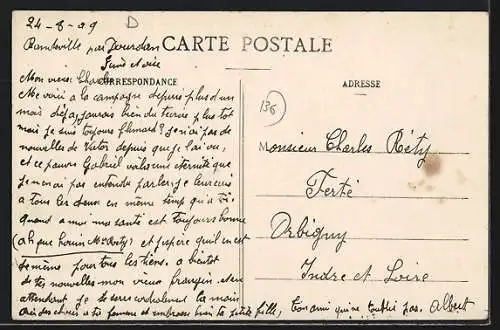 24-8-09 D
par Dourdan
CARTE POSTALE
Seine et Oise
CORRESPONDANCE
ADRESSE
136
Mon vieux Charles
Me voici a la campagne depuis plus d'un
mois déja, j'aurais bien du t'ecrire plus tot
mais je suis toujours flemard? je n'ai pas de
nouvelles de Victor depuis que je l'ai vu,
et ce pauvre Gabriel voila une éternité que
je n'en ai pas entendu parler, je leur écris
a tous les deux en même temps qu'a toi
quand a moi ma santé est toujours bonne
et j'espère qu'il en est
de même pour tous les tiens. a bientot
de tes nouvelles mon vieux frangin, et en
attendant je te serre cordialement la main
bien des choses a ta femme et embrasse bien la petite fille, Ton ami qui ne t'oublie pas. Albert
Monsieur Charles Réty
Ferté
Orbigny
Indre et Loire